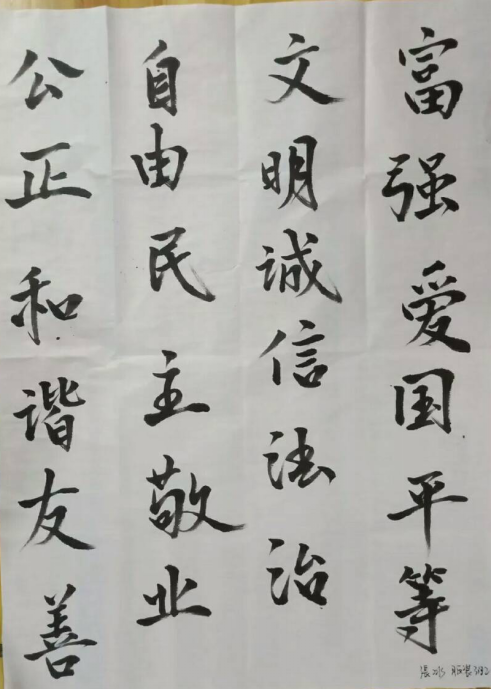 富强爱国平等
文明诚信法治
自由民主敬业
公正和谐友善